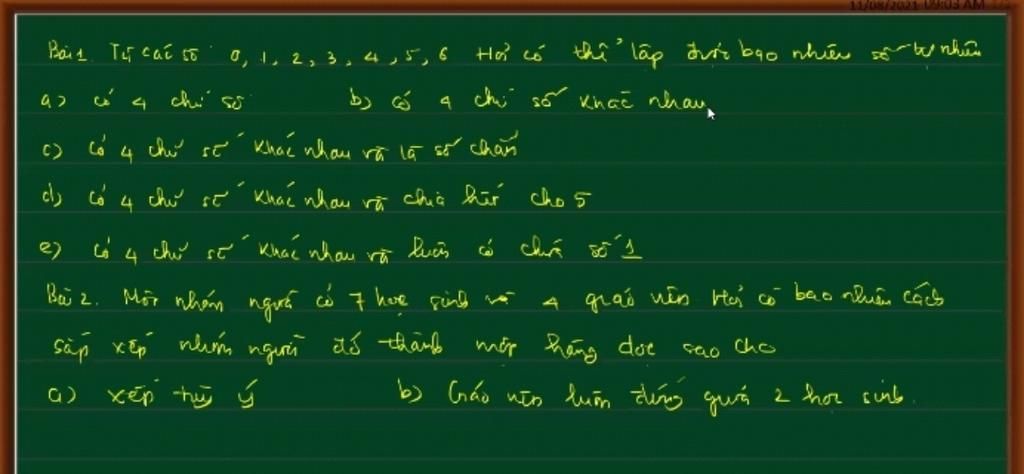 11/08/2021 09:03 AM
Bài 1. Từ các số 0, 1, 2, 3, 4, 5, 6 Hỏi có thể lập được bao nhiêu số tự nhiên
a) có 4 chữ số b) có 4 chữ số khác nhau
c) có 4 chữ số khác nhau và là số chẵn
d) có 4 chữ số khác nhau và chia hết cho 5
e) có 4 chữ số khác nhau và luôn có chữ số 1
Bài 2. Một nhóm người có 7 học sinh và 4 giáo viên Hỏi có bao nhiêu cách
sắp xếp nhóm người đó thành một hàng dọc sao cho
a) xếp tùy ý b) Giáo viên luôn đứng giữa 2 học sinh.